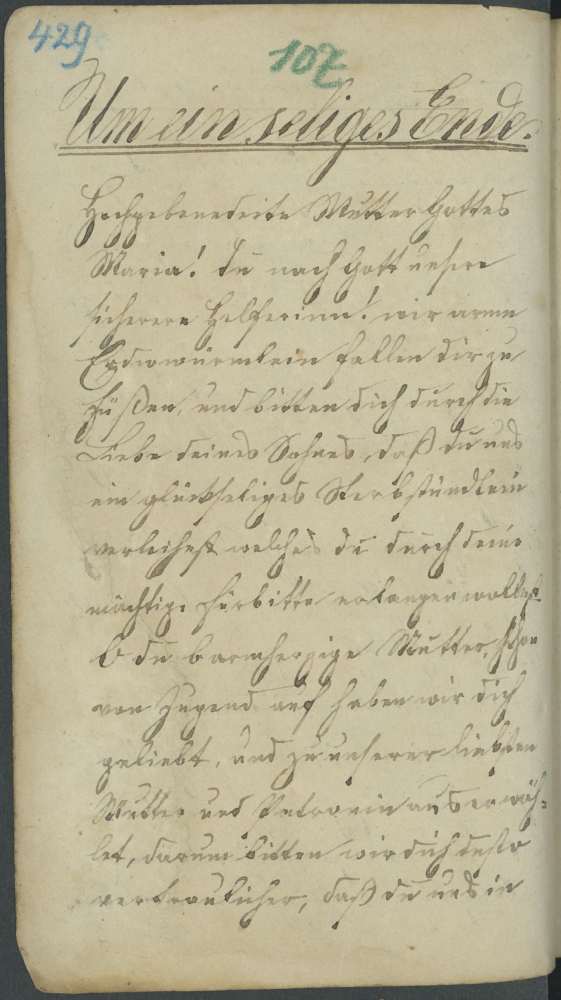 429
107
Um ein seliges Ende.
Hochgebenedeite Mutter Gottes
Maria! du nach Gott unsere
sicherere Helferinn! wir arme
Erdwürmlein fallen dir zu
Füßen, und bitten dich durch die
Liebe deines Sohnes, daß du uns
ein glückseliges Sterbstündlein
verleihest welches du durch deine
mächtige Fürbitte erlangen wollest
O du barmherzige Mutter, schon
von Jugend auf haben wir dich
geliebt, und zu unserer liebsten
Mutter und Patronin auserwäh=
let, darum bitten wir dich desto
vertraulicher, daß du uns in